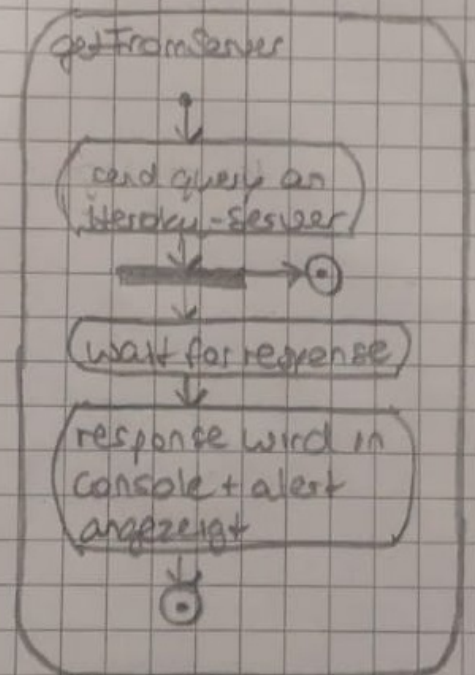 getFromServer
send query an
Heroku-Server
wait for response
response wird in
console + alert
angezeigt